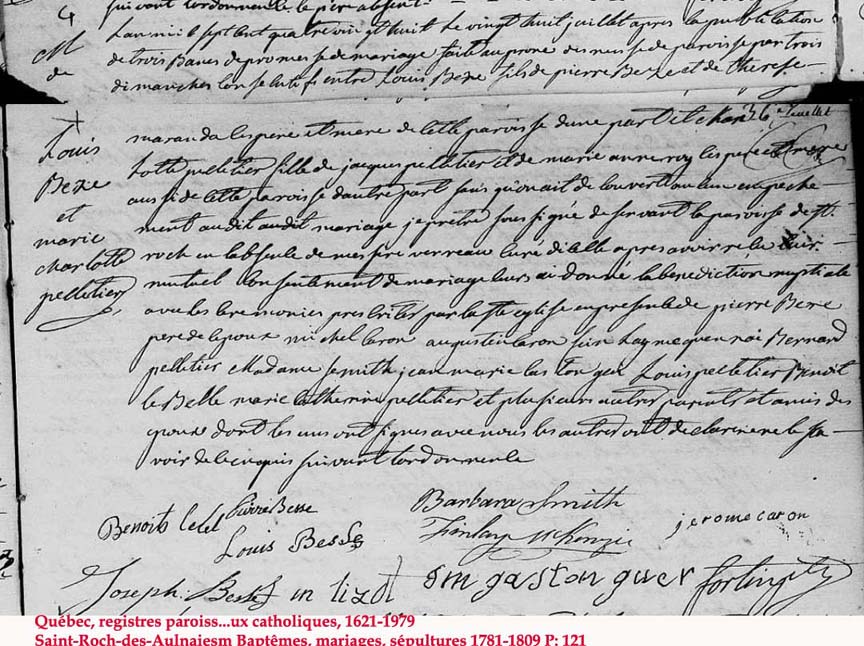 suivant l'ordonnence le pere absent.
M
de
L'an mil sept cent quatre vin gt huit le vingt huit juillet apres la publication
de trois Bancs de promesse de mariage faite au prone des messe de paroisse par trois
dimanches Consecutifs entre Louis Beze fils de pierre Beze et de Therese
Louis
Beze
et
marie
charlotte
pelletier
maranda les pere et mere de cette paroisse dune part et
lotte pelletier fille de jacques pelletier et de marie anne roy les pere et mere
aussi de cette paroisse d'autre part sans qu'on ait decouvert aucun empeche
ment au dit mariage je pretre sous signé deservant la paroisse de st.
roch en labsence de messire verreau curé dicelle apres avoir reçu leur
mutuel Consentement de mariage leurs ai donné la benediction nuptiale
avec les ceremonies prescrites par la ste eglise en presence de pierre Beze
pere de lepoux michel caron augustin caron Bernard
pelletier Madame Smith jean marie Louis pelletier Benoit
le Belle marie Catherine pelletier et plusieurs autres parents et amis des
epoux dont les uns ont signes avec nous les autres ont declarer ne le sa
voir de ce enquis suivant l'ordonnence
Benoit lebel Pierre Besse
Louis Besse
Barbara Smith
Finlay McKenzie
jerome caron
Joseph
gaston guer
fortin ptr
Québec, registres paroiss...ux catholiques, 1621-1979
Saint-Roch-des-Aulnaiesm Baptêmes, mariages, sépultures 1781-1809 P: 121